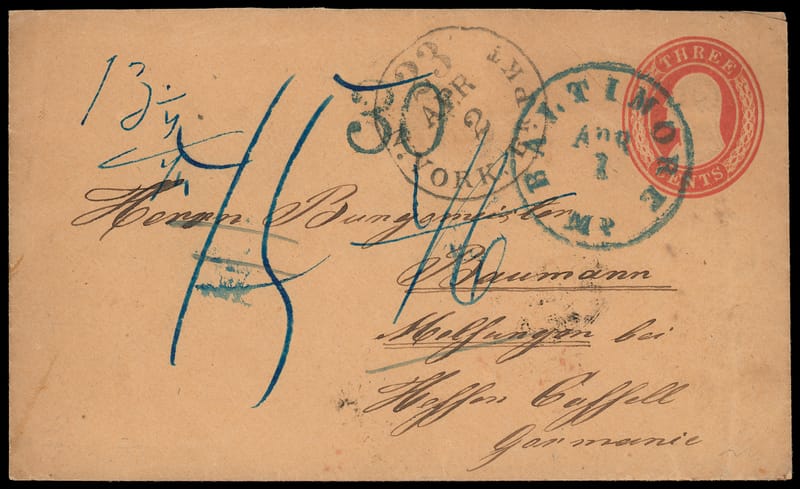 THREE
CENTS
BALTIMORE Md
APR
1
N. YORK. PKT
23
APR
2
30
15
Herrn Burgemeister
Baumann
Melsungen bei
Hessen Cassell
Germanie